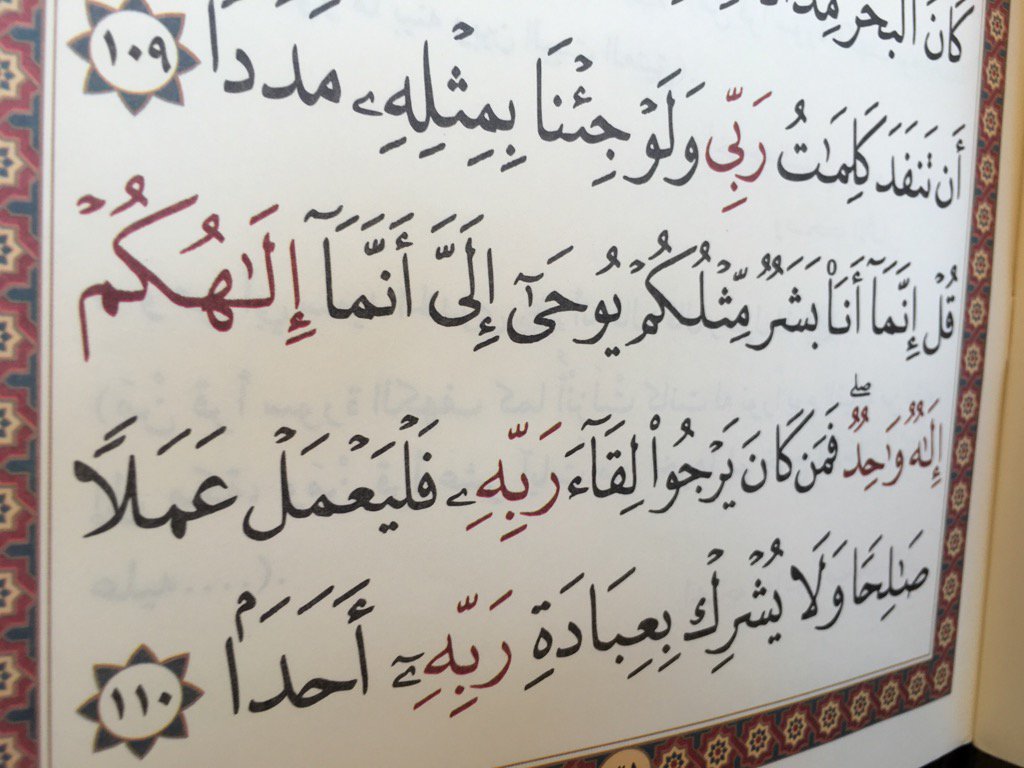 كَانَ الْبَحْرُ مِدَادًا
أَن تَنفَدَ كَلِمَٰتُ رَبِّي وَلَوْ جِئْنَا بِمِثْلِهِۦ مَدَدًا ١٠٩
قُلْ إِنَّمَآ أَنَا۠ بَشَرٌ مِّثْلُكُمْ يُوحَىٰٓ إِلَىَّ أَنَّمَآ إِلَٰهُكُمْ
إِلَٰهٌ وَٰحِدٌ ۖ فَمَن كَانَ يَرْجُوا۟ لِقَآءَ رَبِّهِۦ فَلْيَعْمَلْ عَمَلًا
صَٰلِحًا وَلَا يُشْرِكْ بِعِبَادَةِ رَبِّهِۦٓ أَحَدَۢا ١١٠